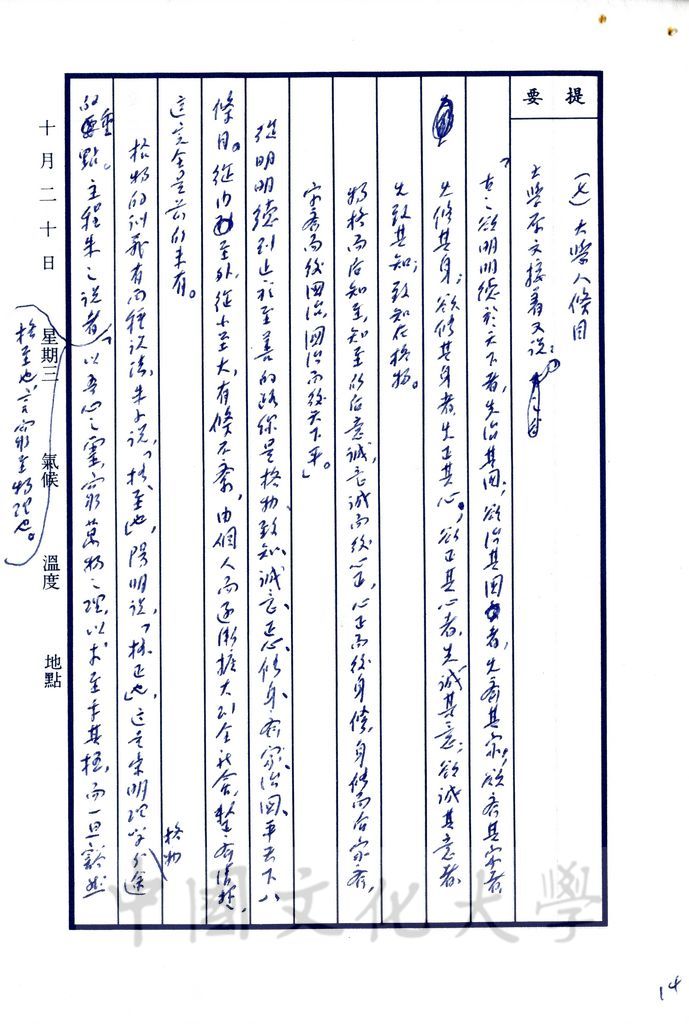 提要
(七)大學八條目
大學原文接著又說:
「古之欲明明德於天下者,先治其國;欲治其國者,先齊其家;欲齊其家者
先修其身;欲修其身者,先正其心;欲正其心者,先誠其意;欲誠其意者
先致其知;致知在格物。
物格而后知至,知至而后意誠,意誠而後心正,心正而後身修,身修而后家齊,
家齊而後國治,國治而後天下平」。
從明明德到止於至善的路線是格物、致知、誠意、正心、修身、齊家、治國、平天下八
條目。從內至外,從小至大,有條不紊,由個人而逐漸擴大到全社會,整齊清楚,
這完全是前所未有。
格物的訓釋有兩種說法,朱子說,「格,至也」,陽明說,「格,正也」,這是宋明理學分途
格物
的重點。主程朱之說者,「以吾心之靈,窮萬物之理,以求至乎其極,而一旦豁然
格至也,言窮至物理也。
十月二十日 星期三 氣候 溫度 地點
中國文化大學
14